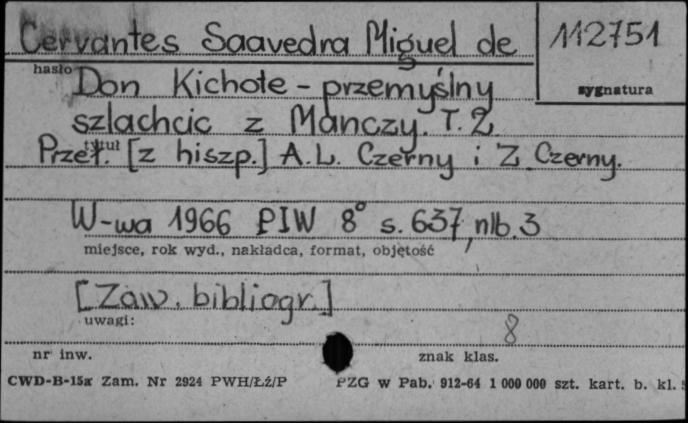 Cervantes Saavedra Miguel de
112751
hasło
sygnatura
Don Kichote - przemyślny
szlachcic z Manczy. T. 2
tytuł
Przeł. [z hiszp.] A.L. Czerny i Z. Czerny.
W-wa 1966 PIW 8° s. 637, nlb. 3
miejsce, rok wyd., nakładca, format, objętość
[Zaw. bibliogr.]
uwagi:
8
nr inw.
znak klas.
CWD-B-15a Zam. Nr 2924 PWH/Łź/P PZG w Pab. 912-64 1 000 000 szt. kart. b. kl.